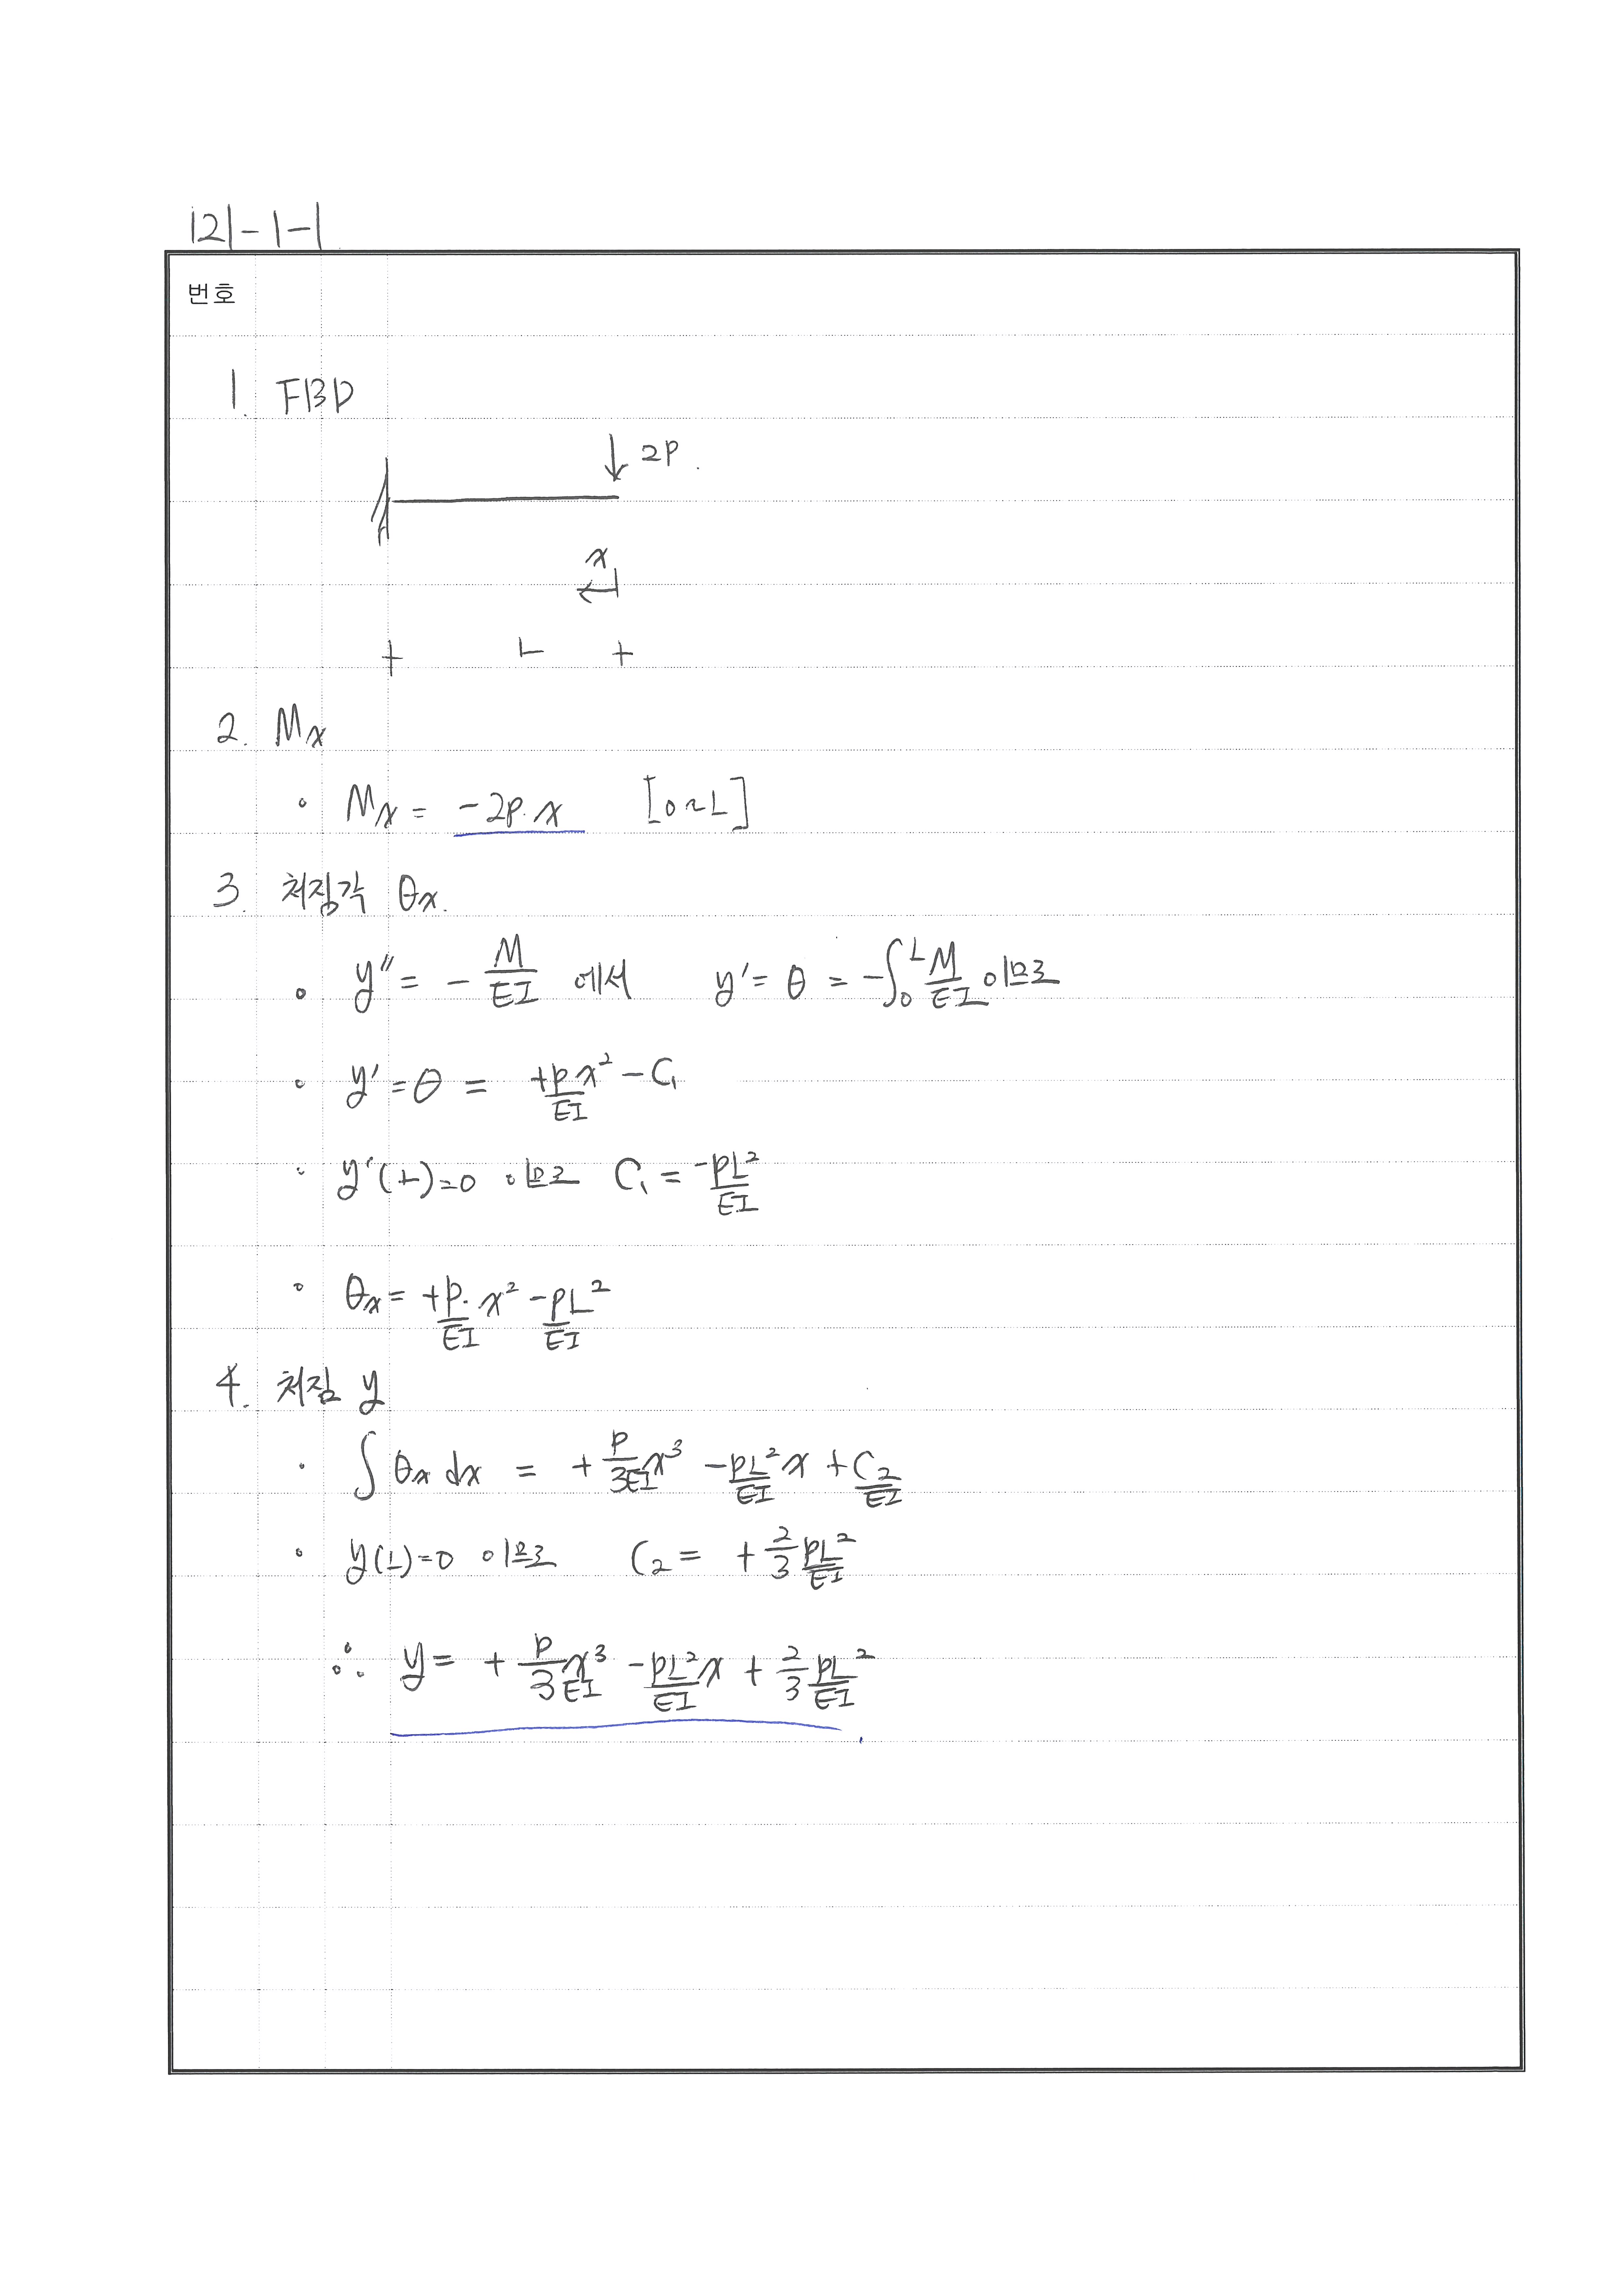 121-1-1
번호
1. FBD
2P
x
L
2. Mx
∘ Mx = -2P·x [0~L]
3. 처짐각 θx.
∘ y″ = -M/EI 에서 y′ = θ = -∫₀ᴸ M/EI 이므로
∘ y′ = θ = +P/EI x² - C₁
∘ y′(L)=0 이므로 C₁ = -PL²/EI
∘ θx = +P/EI · x² - PL²/EI
4. 처짐 y
· ∫ θx dx = + P/3EI x³ - PL²/EI x + C₂/EI
∘ y(L)=0 이므로 C₂ = + 2/3 PL²/EI
∴ y = + P/3EI x³ - PL²/EI x + 2/3 PL²/EI